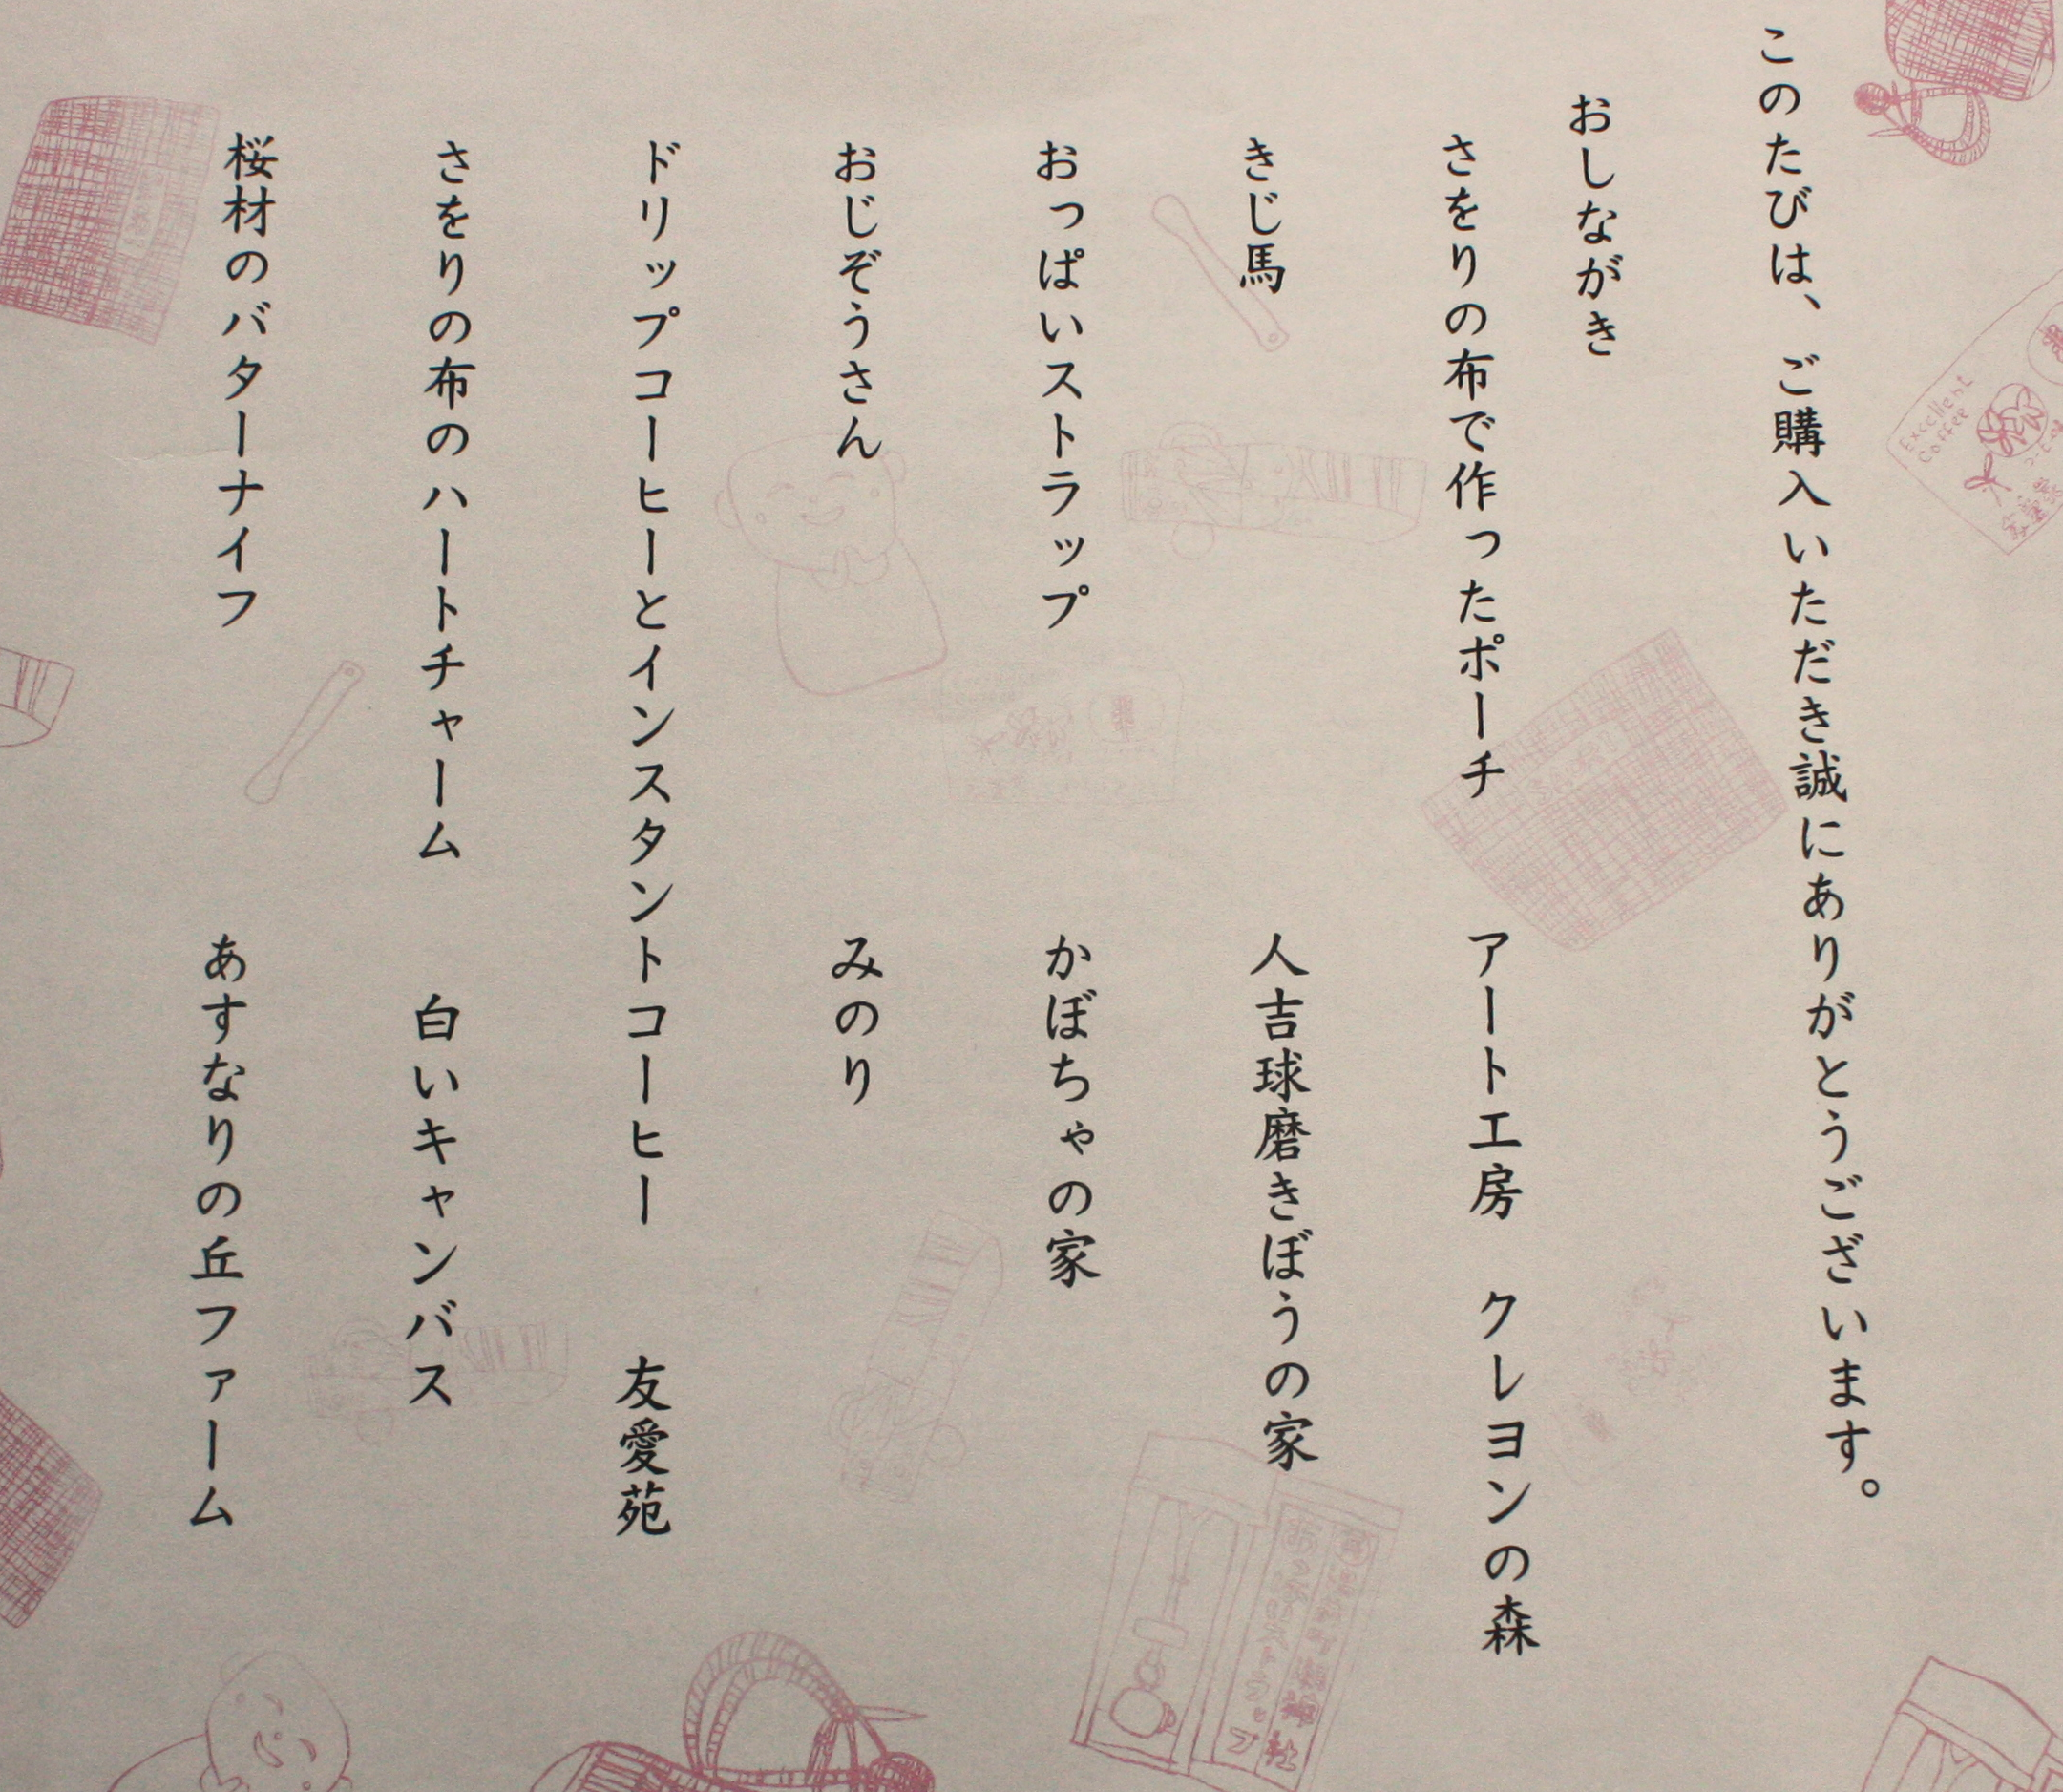 このたびは、ご購入いただき誠にありがとうございます。
おしながき
さをりの布で作ったポーチ　アート工房　クレヨンの森
きじ馬　人吉球磨きぼうの家
おっぱいストラップ　かぼちゃの家
おじぞうさん　みのり
ドリップコーヒーとインスタントコーヒー　友愛苑
さをりの布のハートチャーム　白いキャンバス
桜材のバターナイフ　あすなりの丘ファーム
Excellent
Coffee